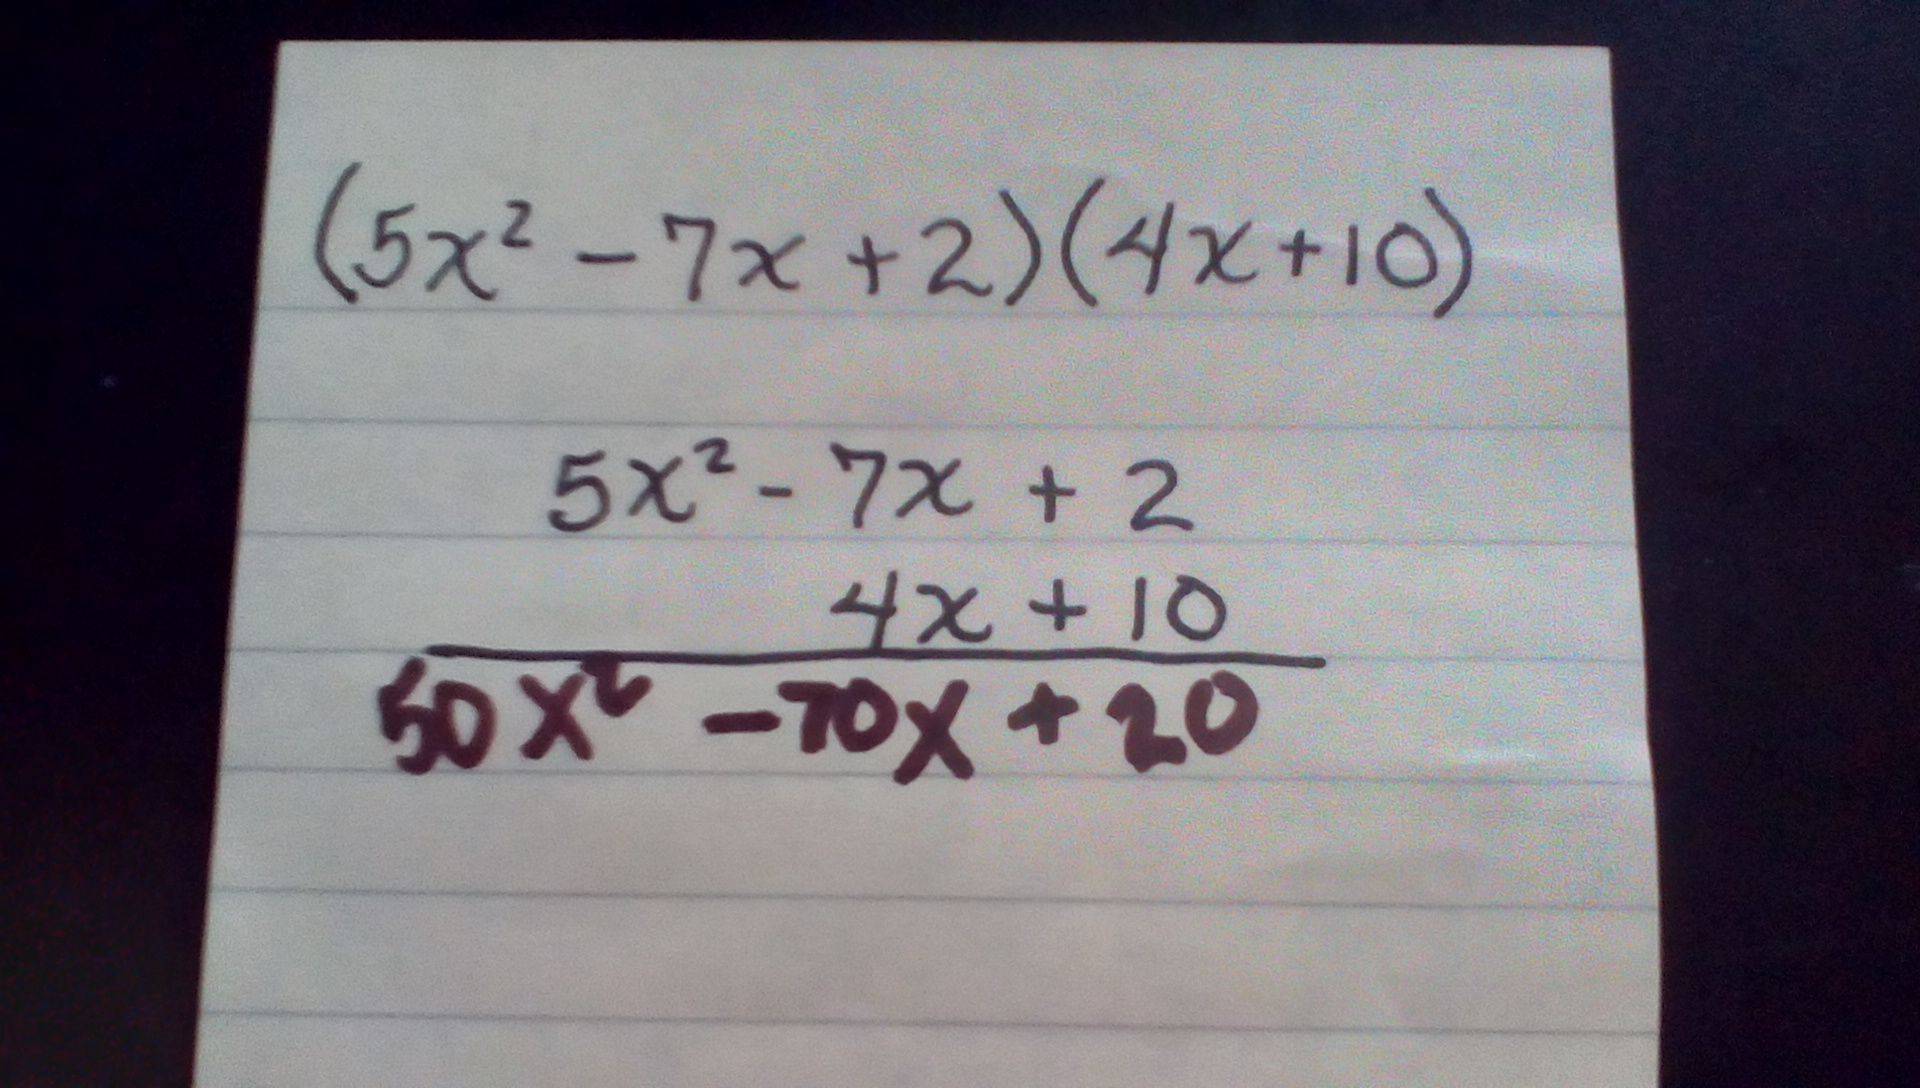 (5x² - 7x + 2)(4x + 10)
5x² - 7x + 2
4x + 10
50x² - 70x + 20